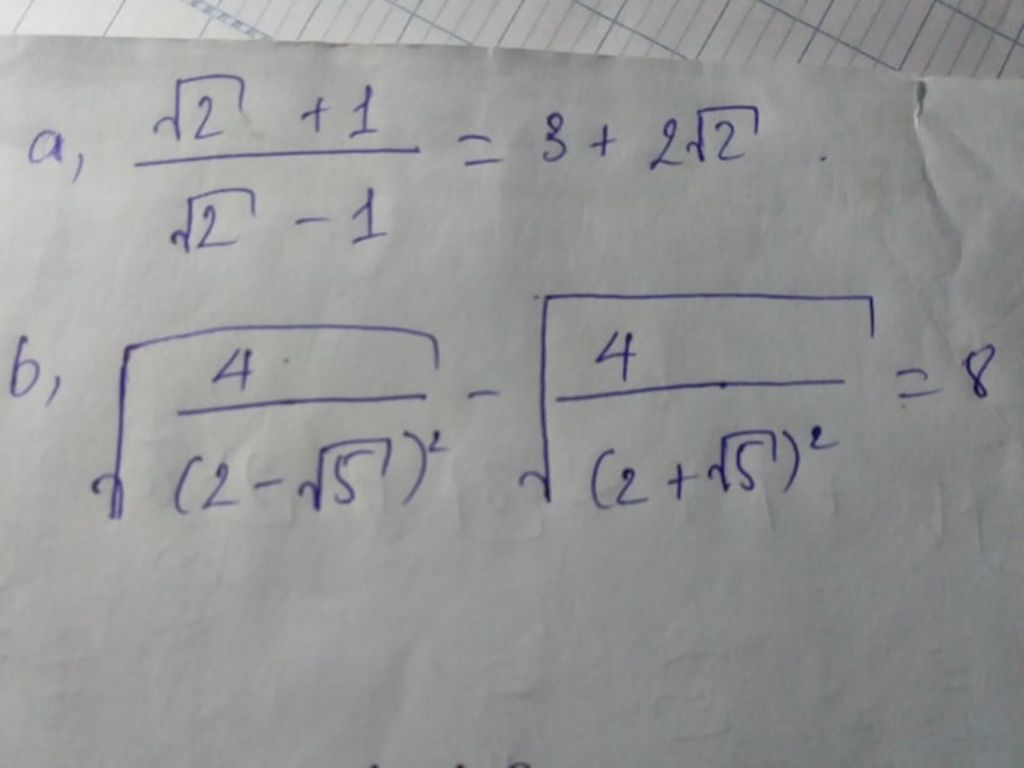 a, \frac{\sqrt{2} + 1}{\sqrt{2} - 1} = 3 + 2\sqrt{2} .
b, \sqrt{\frac{4}{(2-\sqrt{5})^2}} - \sqrt{\frac{4}{(2+\sqrt{5})^2}} = 8